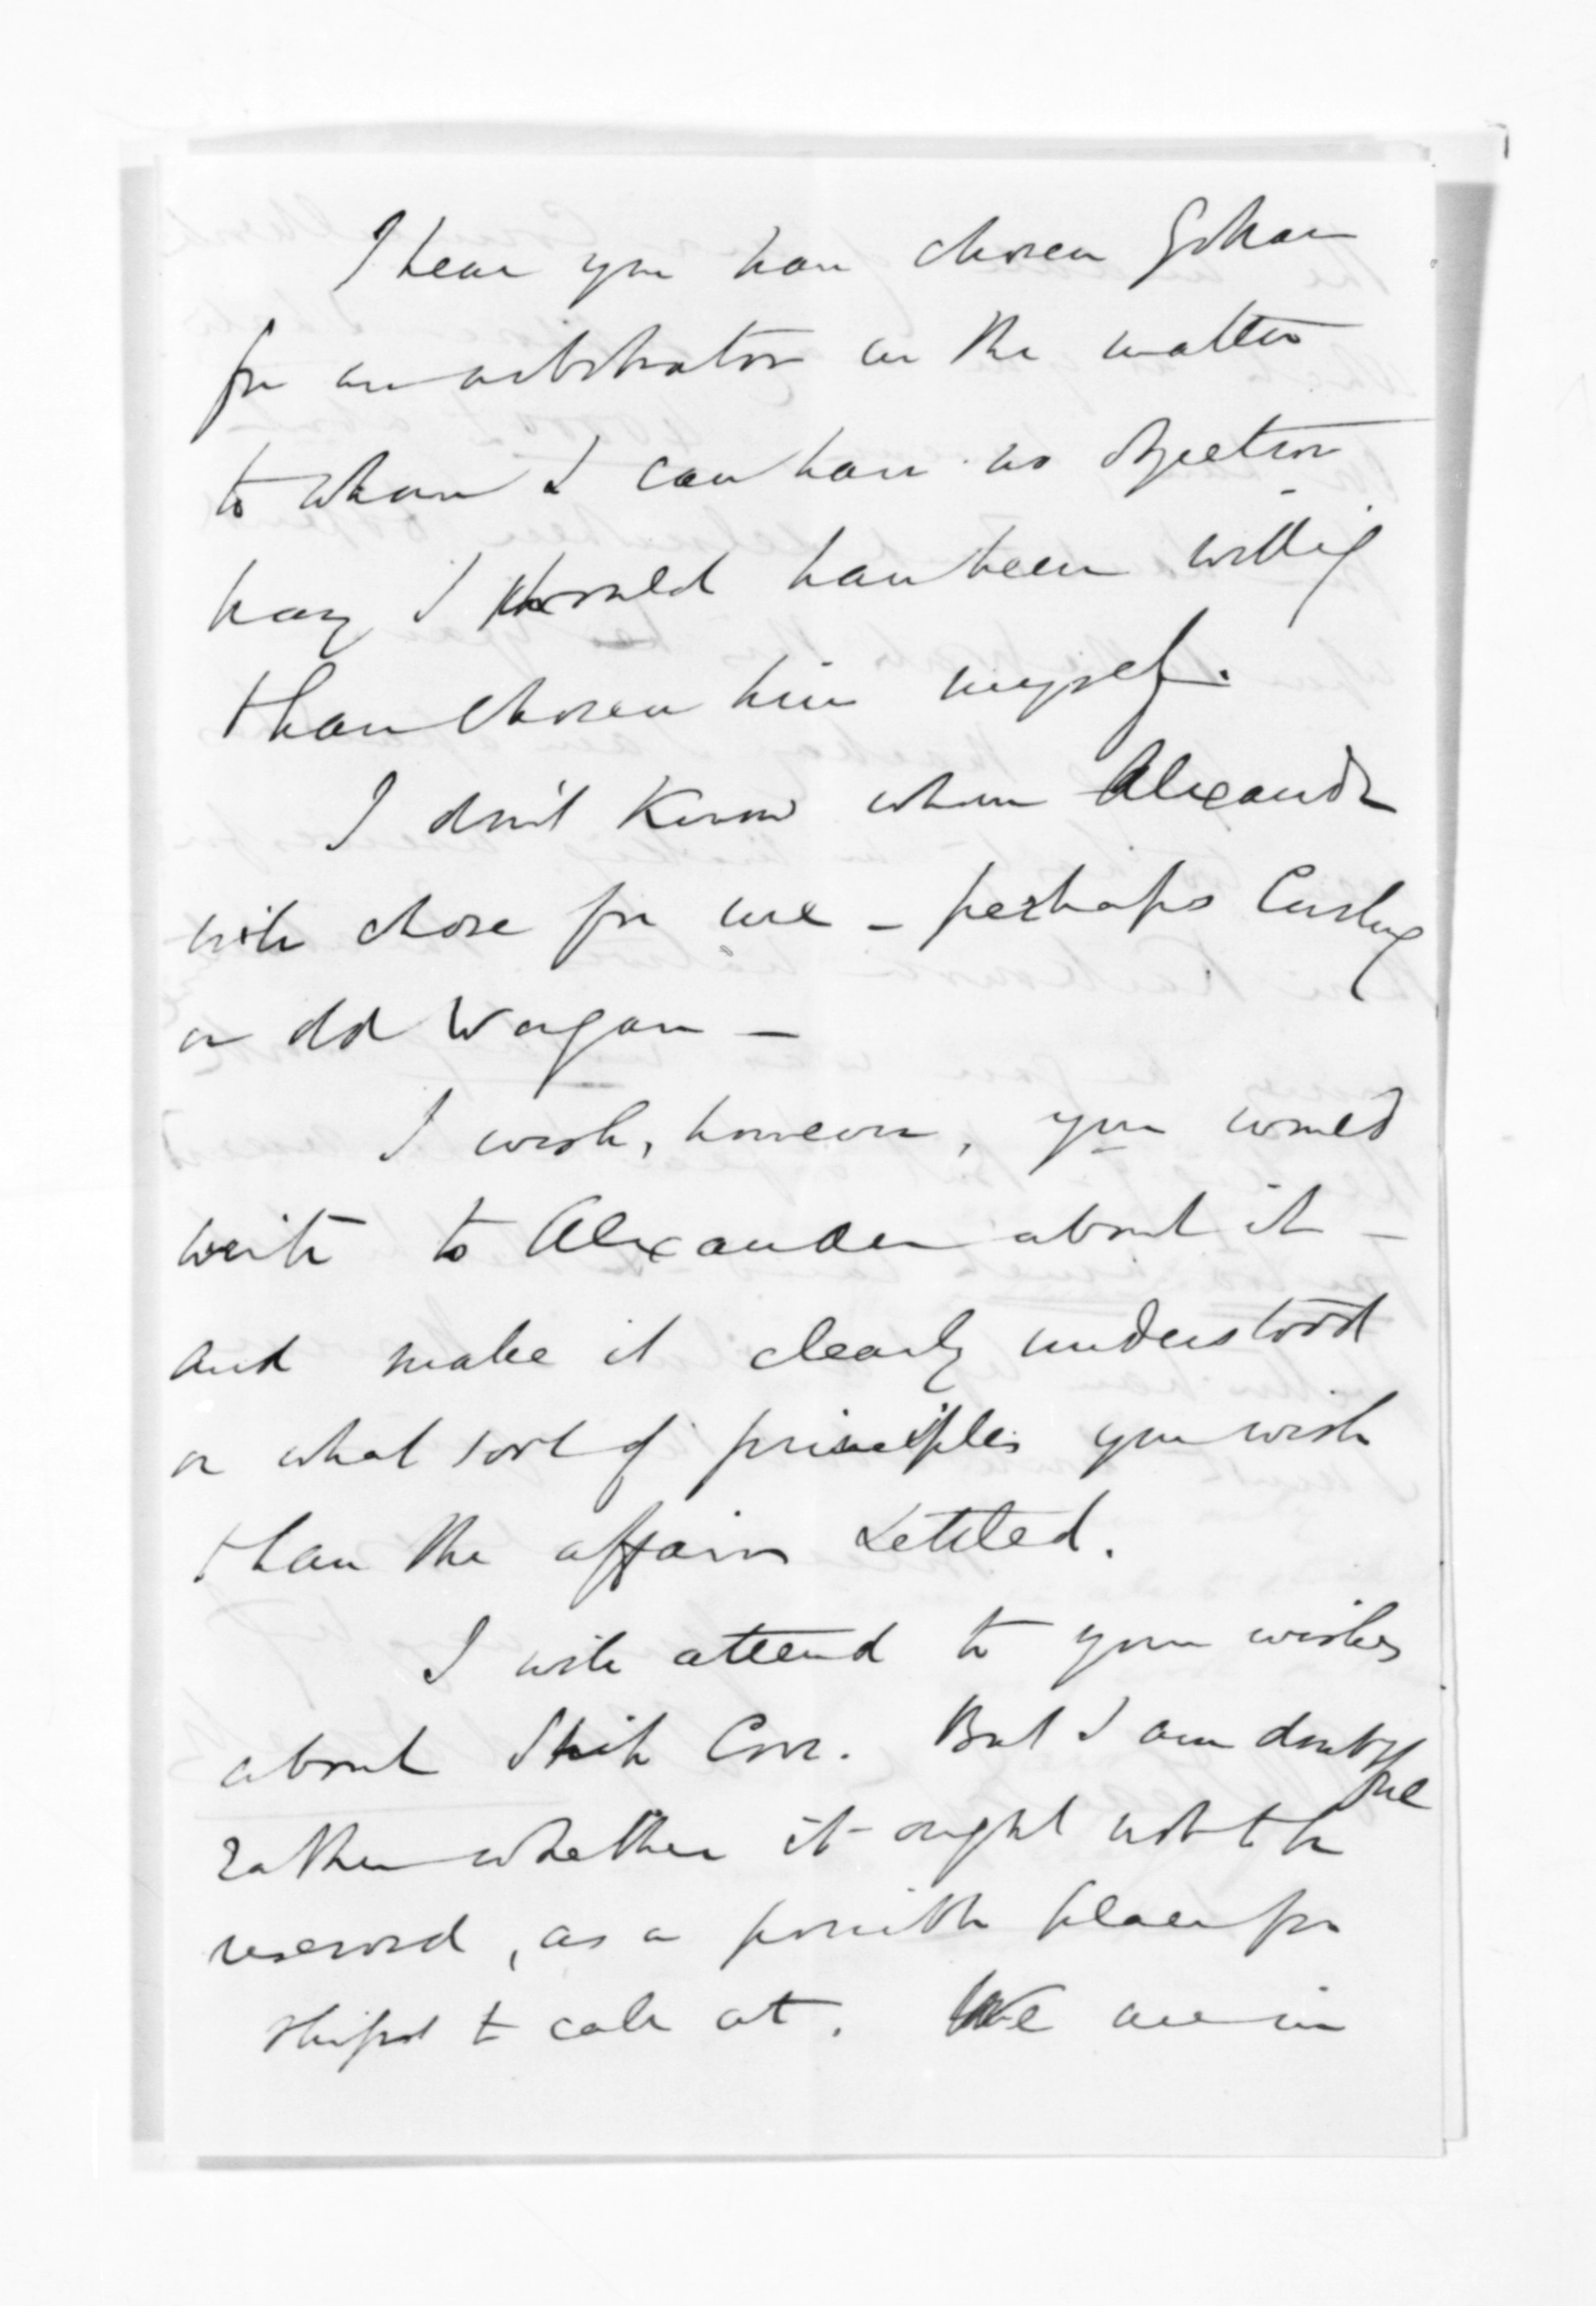 I hear you have chosen
for an arbitrator in the matter
to whom I can have no objection
nay I should have been willing
to have chosen him myself.
I don't know whom Alexander
will chose for me - perhaps
or old Wagan -
I wish, however, you would
write to Alexander about it -
and make it clearly understood
on what sort of principles you wish
to have the affairs settled.
I will attend to your wishes
about But I am doubtful
rather whether it ought not to be
reserved, as a possible place for
ships to call at. We are in